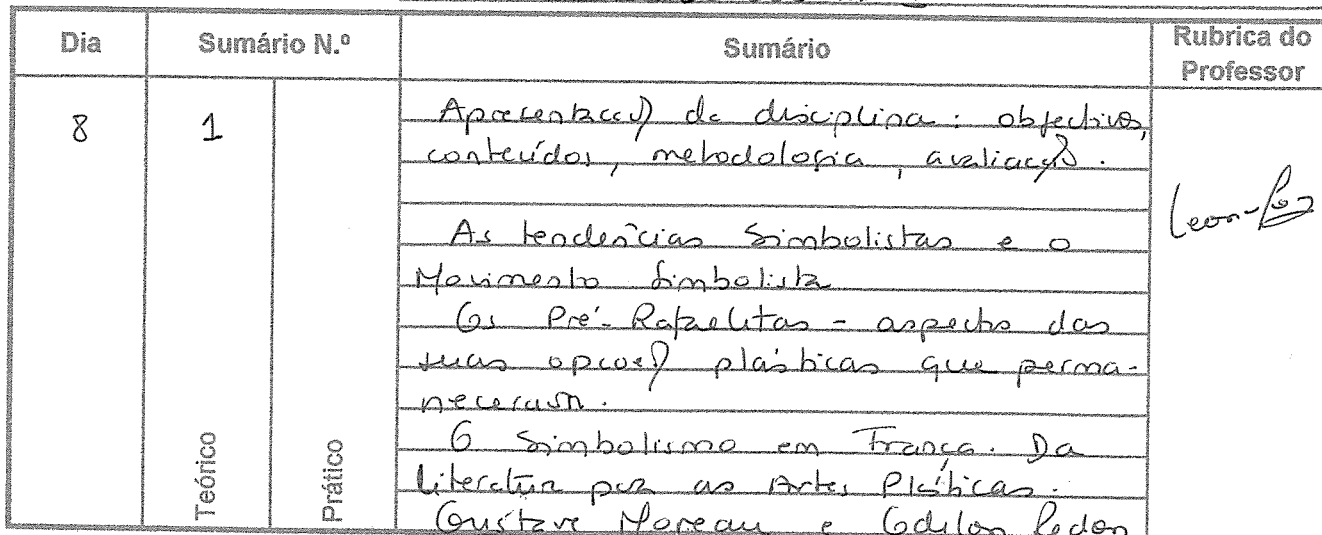 Dia
Sumário N.º
Sumário
Rubrica do
Professor
8
1
Teórico
Prático
Apresentação da disciplina: objectivos,
conteúdos, metodologia, avaliação.
As tendências Simbolistas e o
Movimento Simbolista
Os Pré-Rafaelitas - aspectos das
suas opções plásticas que perma-
neceram.
O Simbolismo em França. Da
literatura para as Artes Plásticas.
Gustave Moreau e Odilon Redon